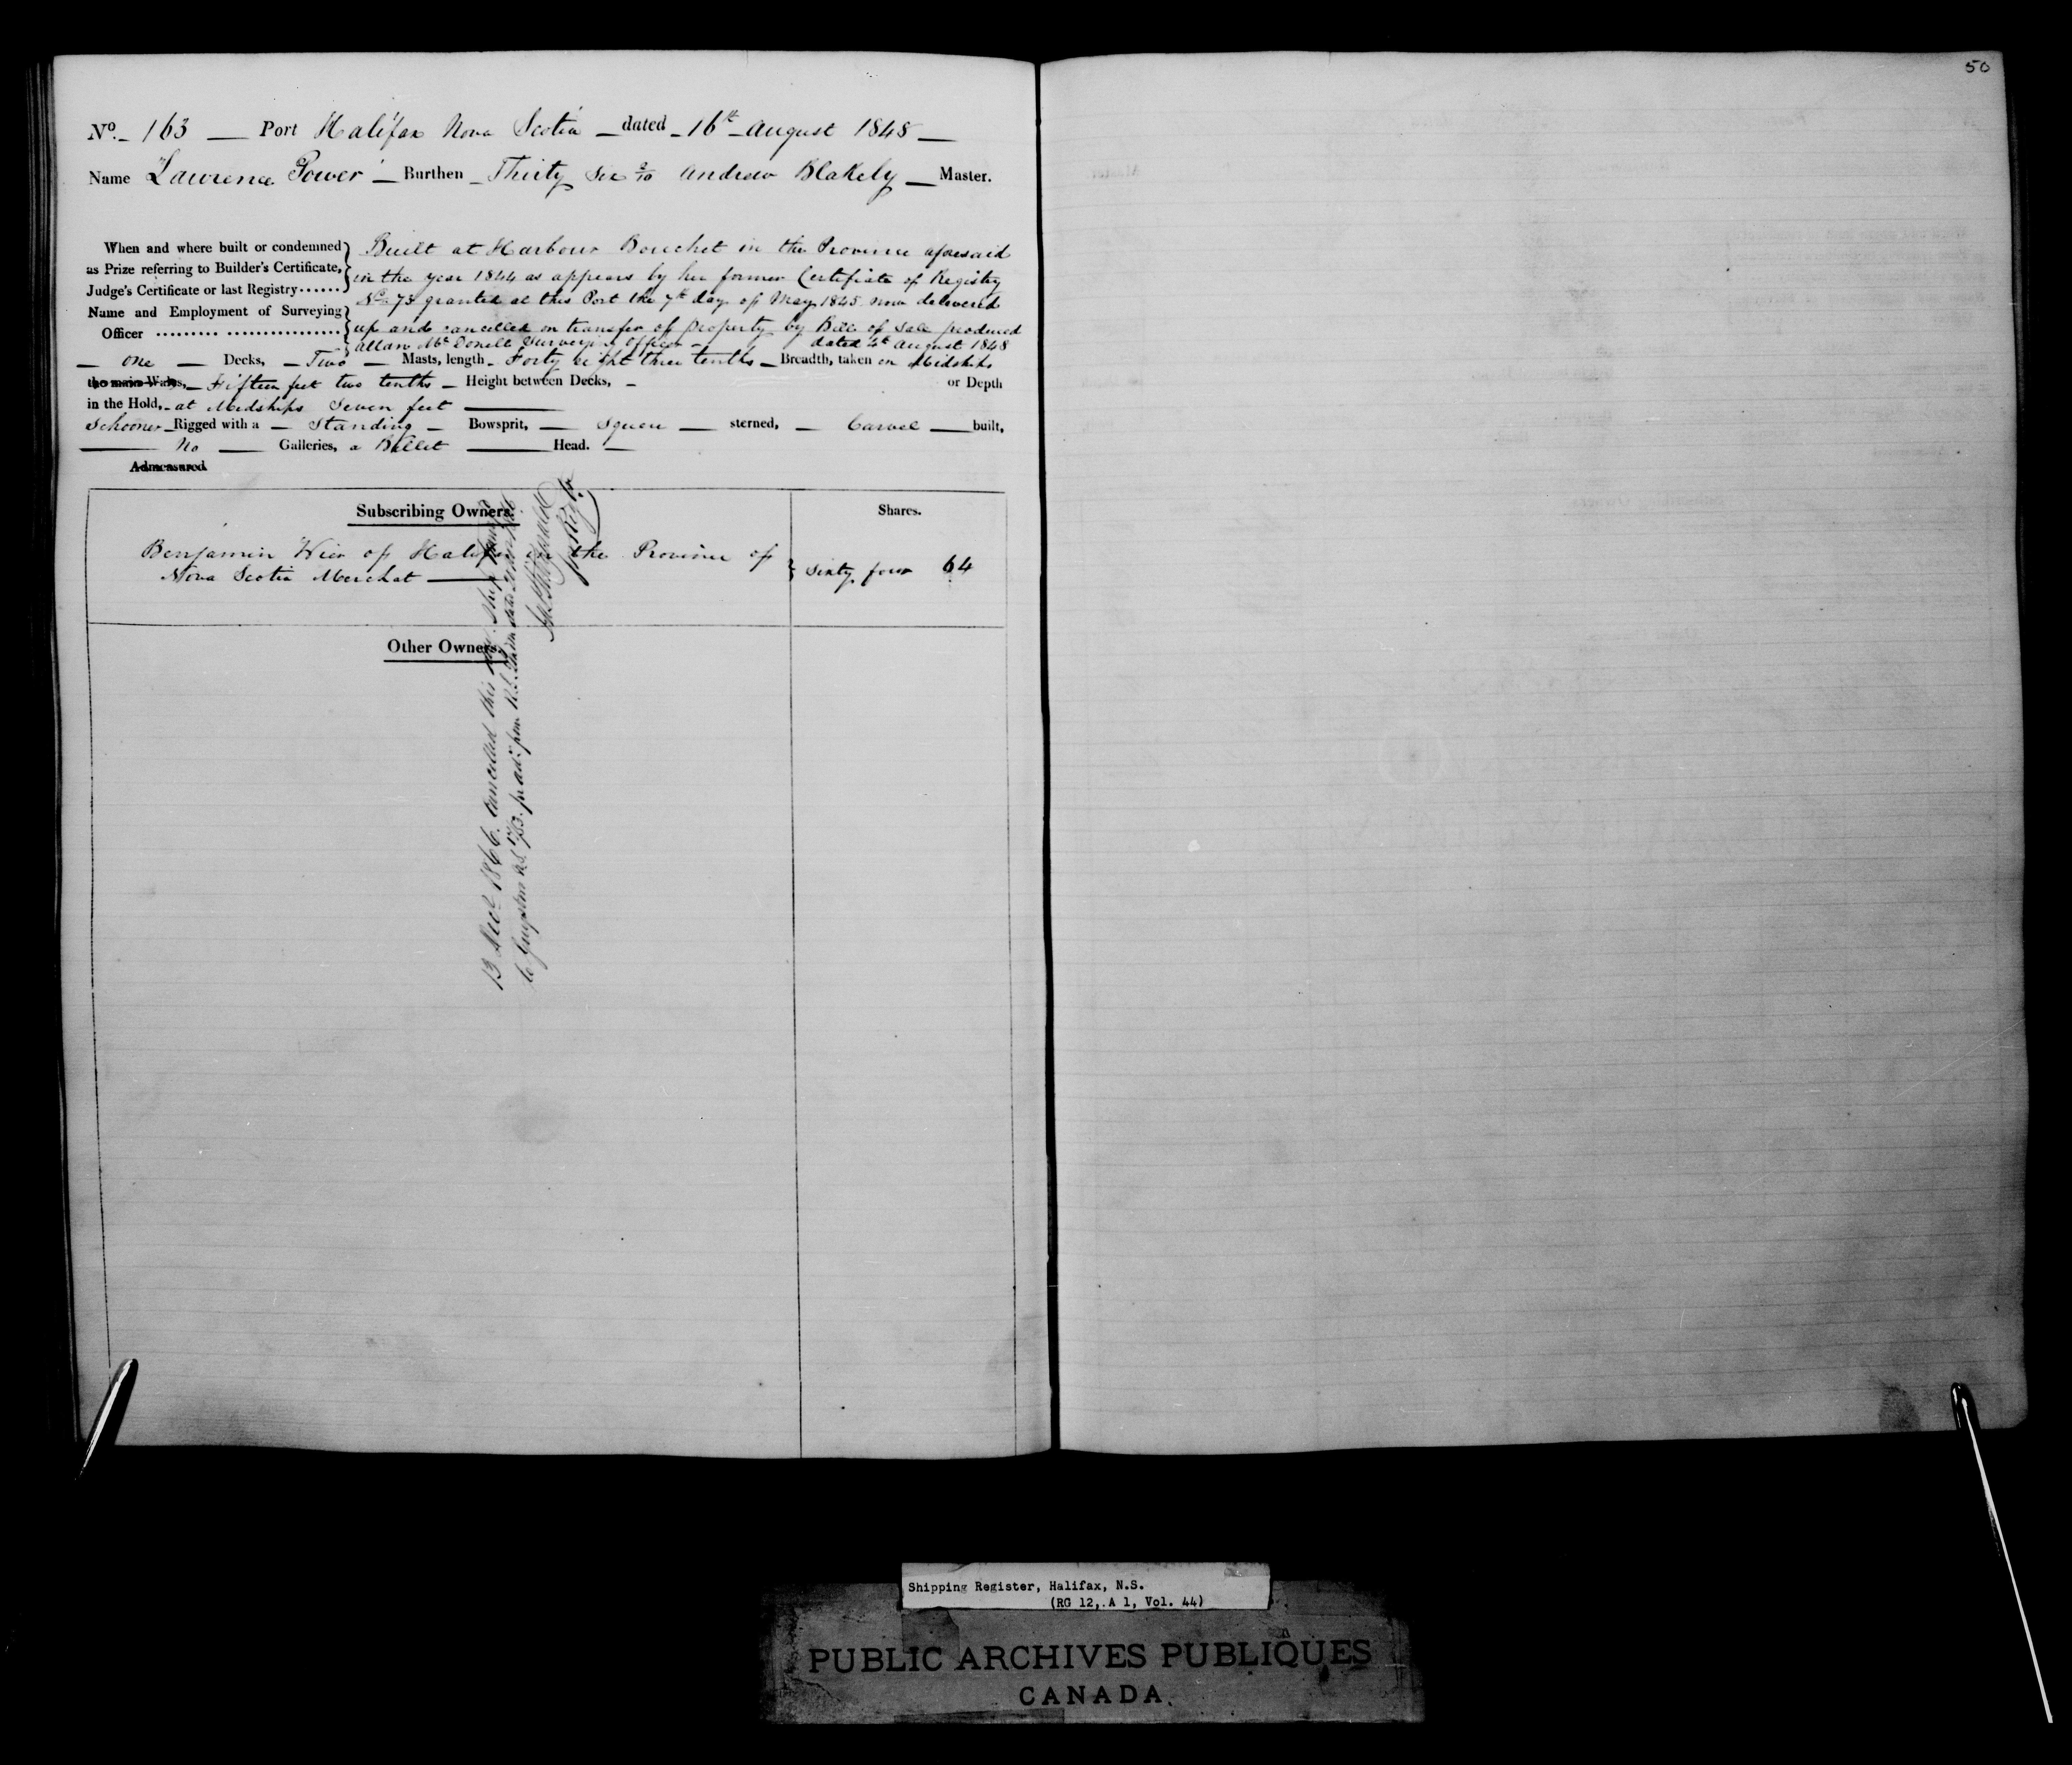 50
No. 163 — Port Halifax Nova Scotia — dated - 16th August 1848 —
Name "Lawrence Power" — Burthen - Thirty Six 2/10 Andrew Blakely — Master.
When and where built or condemned as Prize referring to Builder's Certificate, Judge's Certificate or last Registry......
Name and Employment of Surveying Officer ......... ................
Built at Harbour Bouchet in the Province aforesaid
in the year 1844 as appears by her former Certificate of Registry
No. 73 granted at this Port the 7th day of May 1845 now delivered
up and cancelled on transfer of property by Bill of Sale produced
dated 4th August 1848
Allan McDonell Surveying Officer -
— One — Decks, — Two — Masts, length - Forty eight three tenths — Breadth, taken on Midships
the main Wales, - Fifteen feet two tenths — Height between Decks, — or Depth
in the Hold, - at Midships Seven feet —
Schooner - Rigged with a — Standing — Bowsprit, — Square — sterned, — Carvel — built,
— No — Galleries, a Billet — Head. —
Admeasured
Subscribing Owners. Shares.
Benjamin Wier of Halifax in the Province of
Nova Scotia Merchat — Sixty four 64
Other Owners.
13 Decr 1866. Cancelled this
Shipping Register, Halifax, N.S.
(RG 12, A 1, Vol. 44)
PUBLIC ARCHIVES PUBLIQUES
CANADA